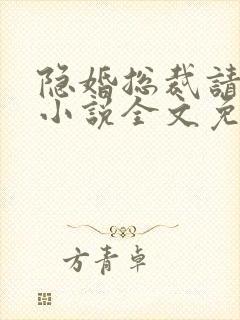 隐婚总裁請
小说全文免
方青卓